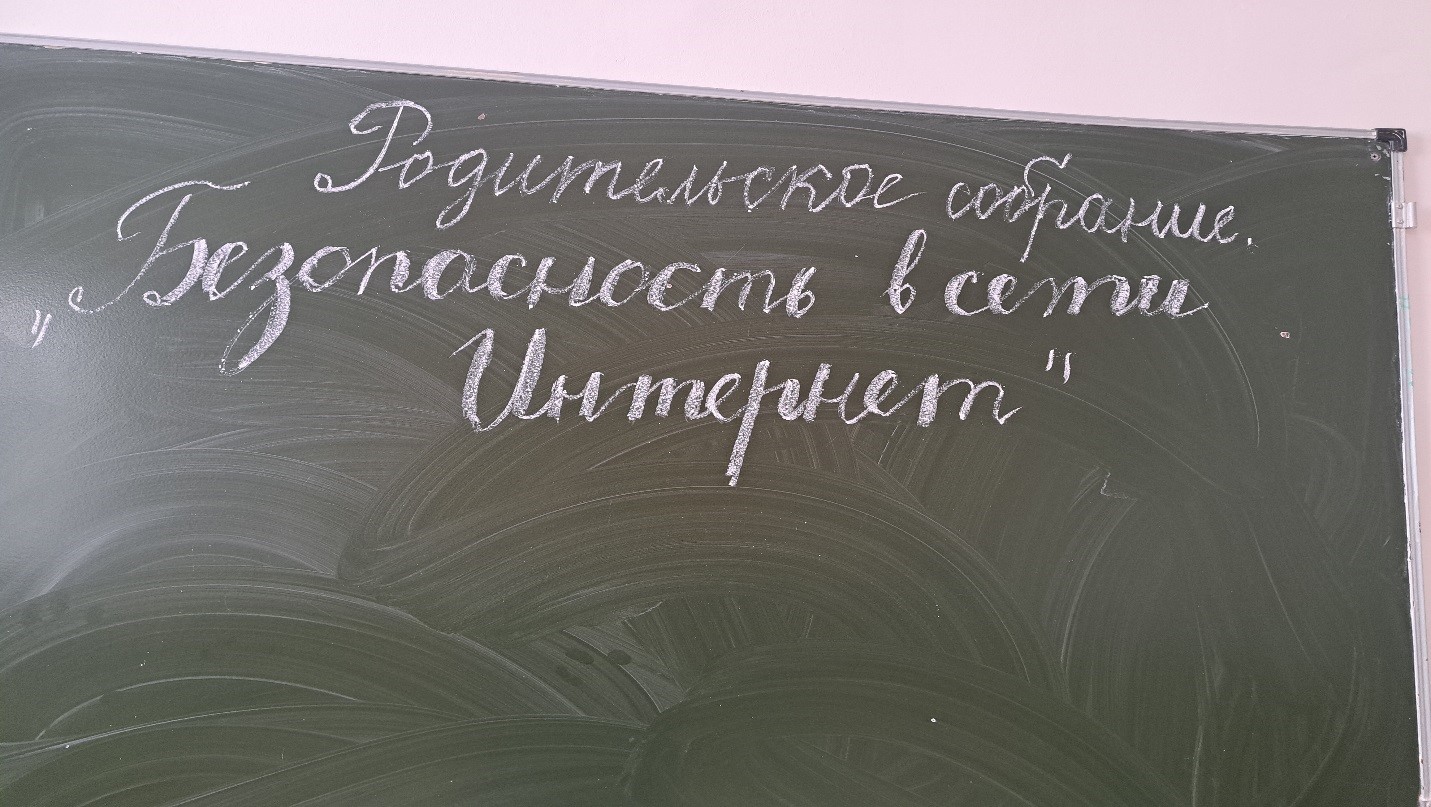 Родительское собрание.
„Безопасность в сети
Интернет"